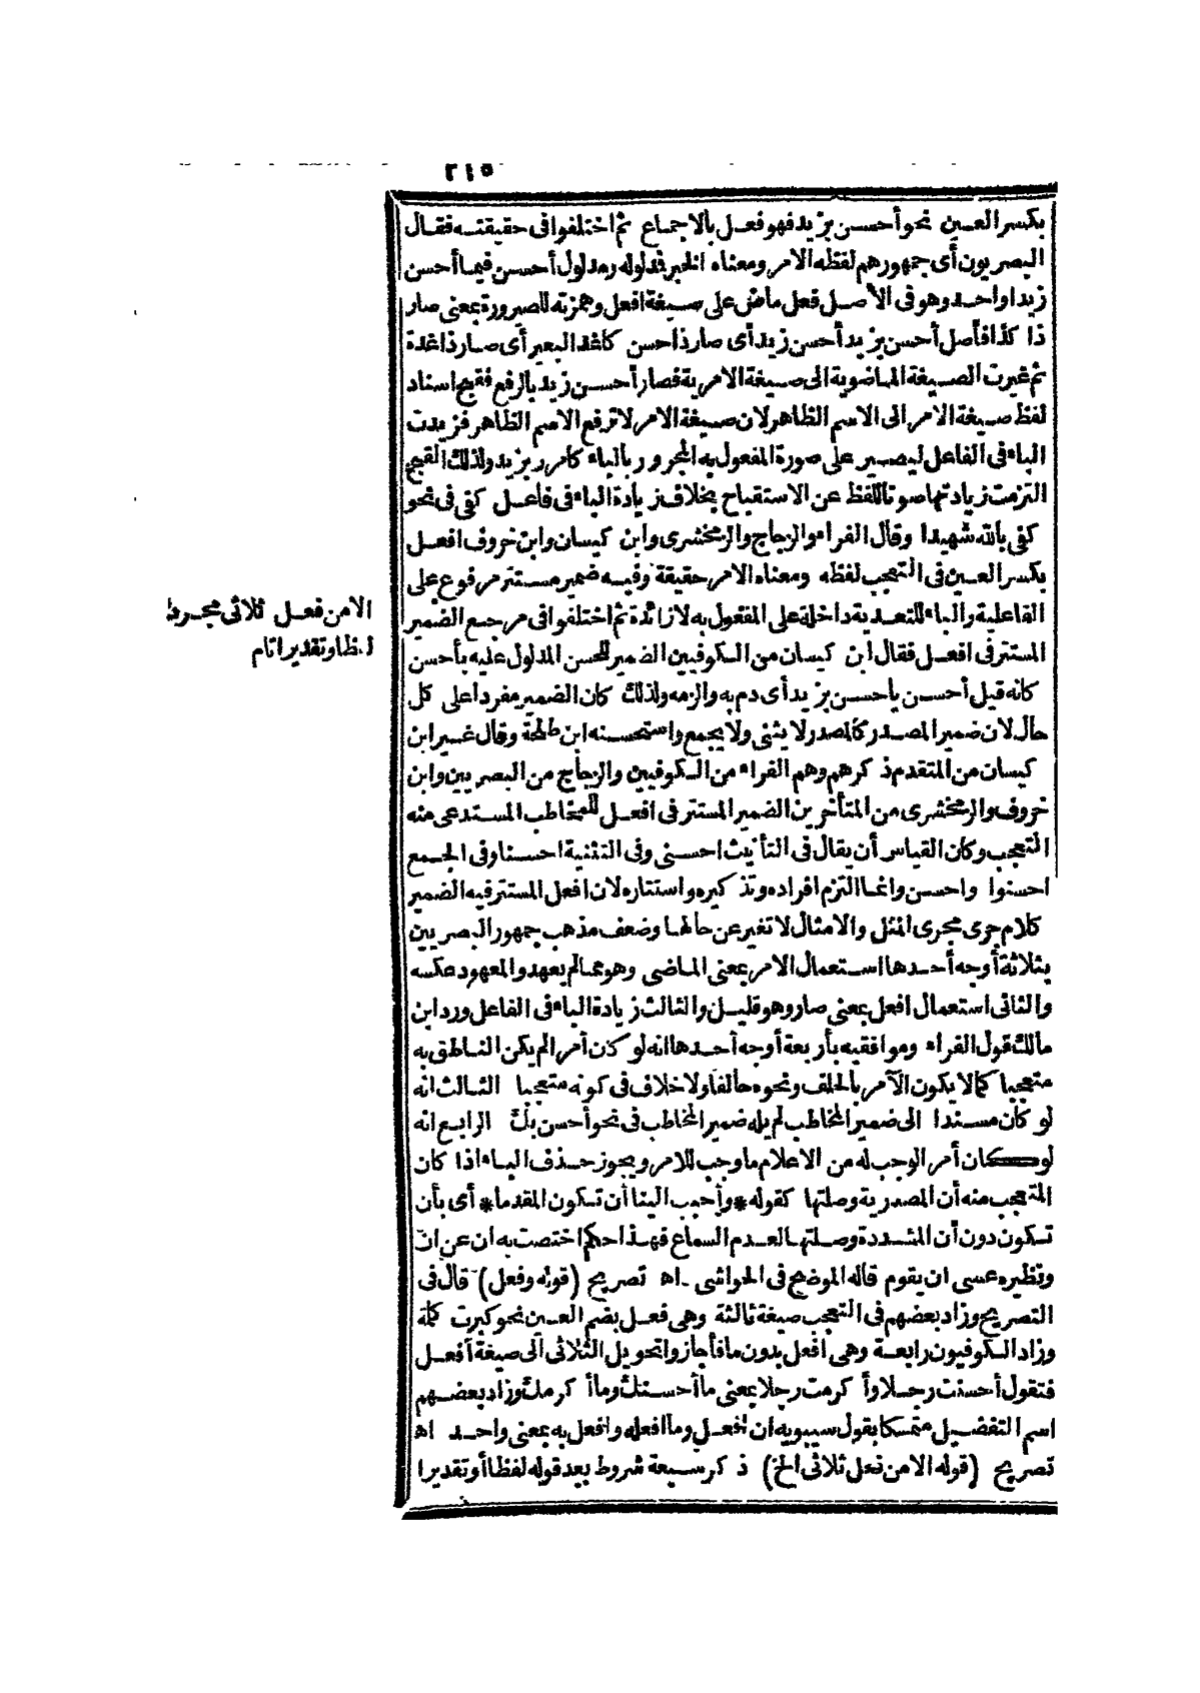 ٢١٥
بكسر العين نحو أحسن بزيد فهو فعل بالاجماع ثم اختلفوا فى حقيقته فقال
البصريون أى جمهورهم لفظه الامر ومعناه الخبر فمدلوله ومدلول أحسن فيما أحسن
زيدا واحد وهو فى الأصل فعل ماض على صيغة افعل وهمزته للصيرورة بمعنى صار
ذا كذا فأصل أحسن بزيد أحسن زيد أى صار ذا حسن كاغد البعير أى صار ذا غدة
ثم غيرت الصيغة الماضوية الى صيغة الامرية فصار أحسن زيد بالرفع فقبح اسناد
لفظ صيغة الامر الى الاسم الظاهر لان صيغة الامر لا ترفع الاسم الظاهر فزيدت
الباء فى الفاعل ليصير على صورة المفعول به المجرور بالباء كامرر بزيد ولذلك القبح
التزمت زيادتها صونا للفظ عن الاستقباح بخلاف زيادة الباء فى فاعل كفى فى نحو
كفى بالله شهيدا وقال الفراء والزجاج والزمخشرى وابن كيسان وابن خروف افعل
بكسر العين فى التعجب لفظه ومعناه الامر حقيقة وفيه ضمير مستتر مرفوع على
الفاعلية والباء للتعدية داخلة على المفعول به لا زائدة ثم اختلفوا فى مرجع الضمير
المستتر فى افعل فقال ابن كيسان من الكوفيين الضمير للحسن المدلول عليه بأحسن
كانه قيل أحسن ياحسن بزيد أى دم به والزمه ولذلك كان الضمير مفردا على كل
حال لان ضمير المصدر كالمصدر لا يثنى ولا يجمع واستحسنه ابن طلحة وقال غير ابن
كيسان من المتقدم ذكرهم وهم الفراء من الكوفيين والزجاج من البصريين وابن
خروف والزمخشرى من المتأخرين الضمير المستتر فى افعل للمخاطب المستدعى منه
التعجب وكان القياس أن يقال فى التأنيث احسنى وفى التثنية احسنا وفى الجمع
احسنوا واحسن وانما التزم افراده وتذكيره واستتاره لان افعل المستتر فيه الضمير
كلام جرى مجرى المثل والامثال لا تغير عن حالها وضعف مذهب جمهور البصريين
بثلاثة أوجه أحدها استعمال الامر بمعنى الماضى وهو مما لم يعهد والمعهود عكسه
والثانى استعمال افعل بمعنى صار وهو قليل والثالث زيادة الباء فى الفاعل ورد ابن
مالك قول الفراء وموافقيه بأربعة أوجه أحدها انه لو كان أمرا لم يكن الناطق به
متعجبا كما لا يكون الآمر بالحلف ونحوه حالفا ولا خلاف فى كونه متعجبا الثالث انه
لو كان مسندا الى ضمير المخاطب لم يله ضمير المخاطب فى نحو أحسن بك الرابع انه
لو كان أمرا لوجب له من الاعلام ما وجب للامر ويجوز حذف الباء اذا كان
المتعجب منه أن المصدرية وصلتها كقوله * وأحبب الينا أن تكون المقدما * أى بأن
تكون دون أن المشددة وصلتها لعدم السماع فهذا حكم اختصت به ان عن انّ
ونظيره عسى ان يقوم قاله الموضح فى الحواشى اه تصريح (قوله وفعل) قال فى
التصريح وزاد بعضهم فى التعجب صيغة ثالثة وهى فعل بضم العين نحو كبرت كلمة
وزاد الكوفيون رابعة وهى افعل بدون ما فأجازوا تحويل الثلاثى الى صيغة أفعل
فتقول أحسنت رجلا وأكرمت رجلا بمعنى ما أحسنك وما أكرمك وزاد بعضهم
اسم التفضيل متمسكا بقول سيبويه ان افعل وما افعله وافعل به بمعنى واحد اه
تصريح (قوله الا من فعل ثلاثى الخ) ذكر سبعة شروط بعد قوله لفظا أو تقديرا
الا من فعل ثلاثى مجرد
لفظا وتقديرا تام